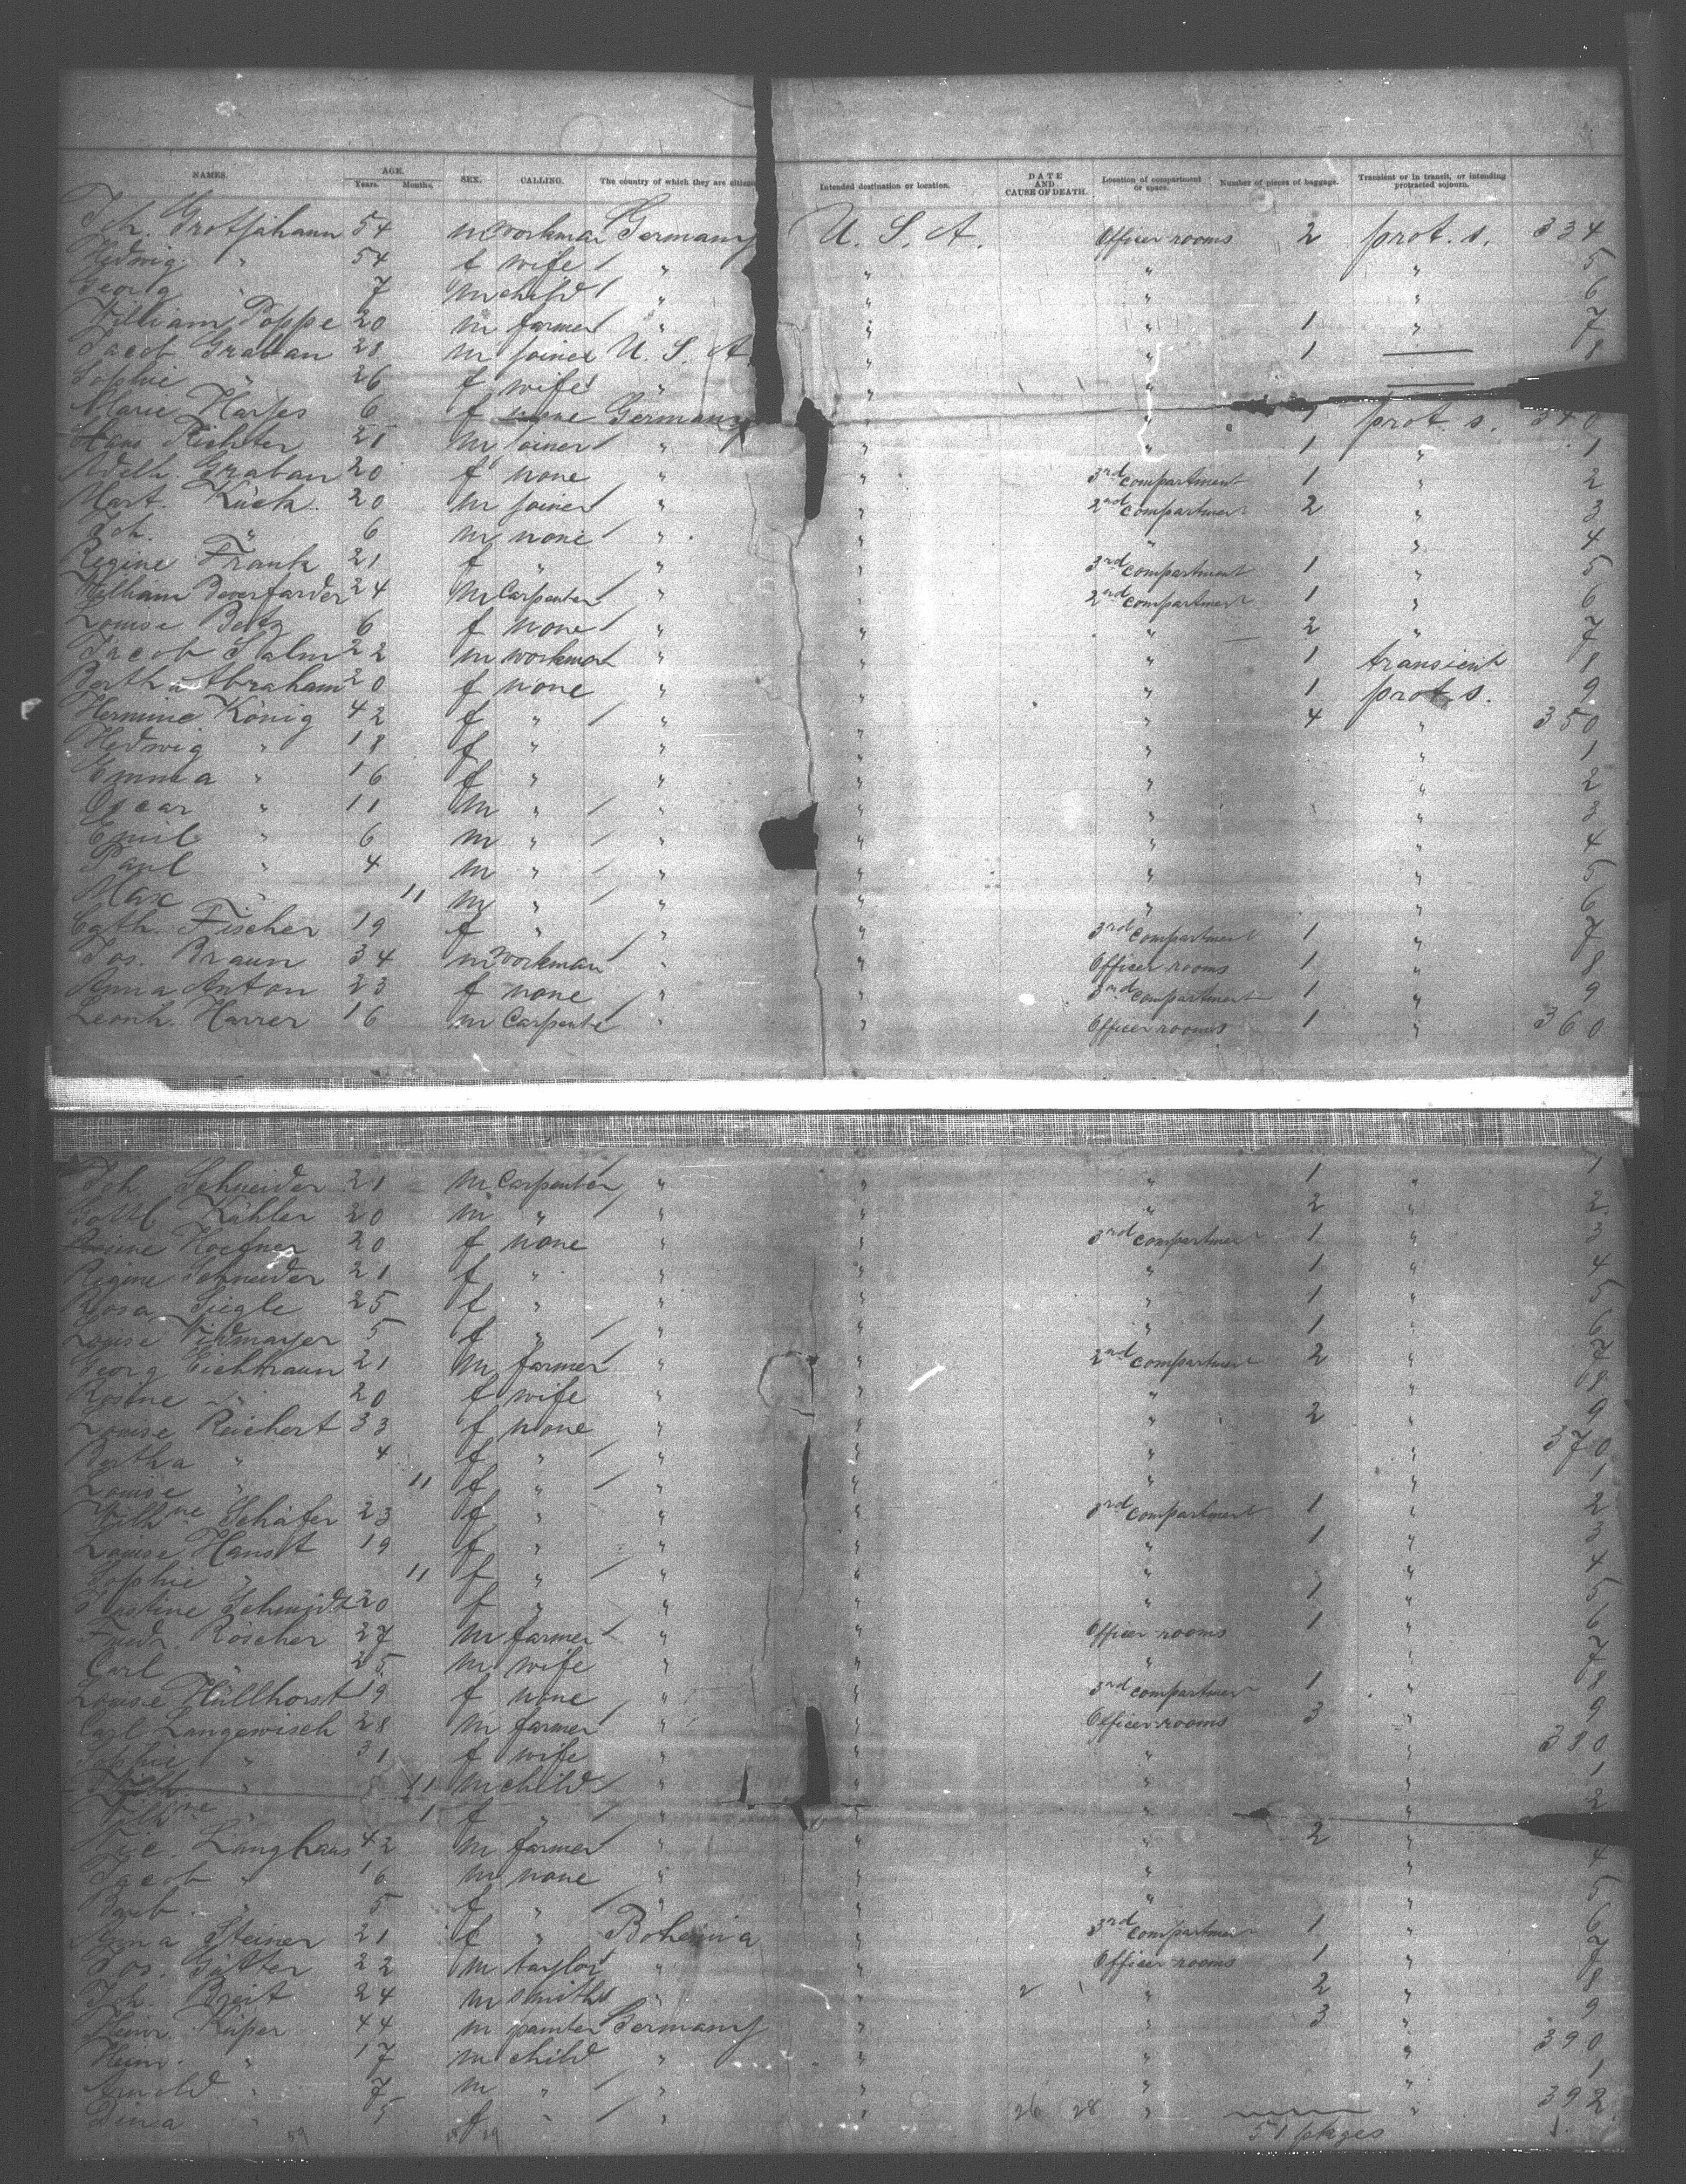 NAMES. AGE. Years. Months. SEX. CALLING. The country of which they are citizens Intended destination or location. DATE AND CAUSE OF DEATH. Location of compartment or space. Number of pieces of baggage. Transient or in transit, or intending protracted sojourn.
Joh. Grotjahann 54 m workman Germany U. S. A. Officer rooms 2 prot. s. 334
Hedwig " 54 f wife / " " " " 5
Georg " 7 m child / " " " " 6
William Poppe 20 m farmer " " " 1 " 7
Jacob Graban 28 m joiner U. S. A " " 1 — 8
Sophie " 26 f wife " " " —
Marie Harjes 6 f none Germany 1 prot. s. 340
Hans Richter 21 m joiner " " " 1 " 1
Adelh. Graban 20 f none " " 3rd compartment 1 " 2
Mart. Kück 20 m joiner " " 2nd compartment 2 " 3
Joh. " 6 m none " " " " 4
Regine Frank 21 f " " " 3rd compartment 1 " 5
William 24 m Carpenter " " 2nd compartment 1 " 6
Louise Betz 6 f none " " " 2 " 7
Jacob Salm 22 m workman " " " 1 transient 8
Bertha Abraham 20 f none " " " 1 prot. s. 9
Hermine König 42 f " / " " " 4 " 350
Hedwig " 18 f " " " " " 1
Emma " 16 f " " " " " 2
Oscar " 11 m " / " " " " 3
Emil " 6 m " / " " " " 4
Paul " 4 m " / " " " " 5
Max " 11 m " / " " " " 6
Cath. Fischer 19 f " " " 3rd compartment 1 " 7
Jos. Braun 34 m workman " " Officer rooms 1 " 8
Anna Anton 23 f none " " 3rd compartment 1 " 9
Leonh. Harrer 16 m Carpenter " " Officer rooms 1 " 360
Joh. Schneider 21 m Carpenter " " " 1 " 1
Gottl. Kähler 20 m " / " " " 2 " 2
Hoefner 20 f none " " 3rd compartment 1 " 3
Regine Schneider 21 f " " " " 1 " 4
Rosa Siegle 25 f " " " " 1 " 5
Louise Widmayer 5 f " / " " " 1 " 6
Georg Eichhraun 21 m farmer " " 2nd compartment 2 " 7
Rosine " 20 f wife " " " " 8
Louise Reichert 33 f none " " " 2 " 9
Bertha " 4 f " / " " " " 370
Louise " 11 f " / " " " " 1
Wilhne Schäfer 23 f " " " 3rd compartment 1 " 2
Louise Hanst 19 f " " " " 1 " 3
Sophie " 11 f " / " " " " 4
Justine Schmidt 20 f " " " " 1 " 5
Friedr. Röscher 27 m farmer " " Officer rooms 1 " 6
Carl " 25 m wife " " " " 7
Louise Hüllhorst 19 f none " " 3rd compartment 1 " 8
Carl Langewisch 28 m farmer " " Officer rooms 3 " 9
Sophie " 31 f wife " " " " 380
" 11 m child / " " " " 1
Wilhne " 1 f " / " " " " 2
Nic. Langhans 42 m farmer " " " 2 "
Jacob " 6 m none " " " " 4
Barb. " 5 f " / " " " " 5
Anna Steiner 21 f " Bohemia " 3rd compartment 1 " 6
Jos. Gütter 22 m taylor " " Officer rooms 1 " 7
Joh. Breit 24 m smith " " 2 " 2 " 8
Heinr. Küper 44 m painter Germany " " 3 " 9
Heinr. " 17 m child " " " " 390
Arnold " 7 m " / " " " " 1
Dina " 5 f " / " " 26 28 " " 392
59 51 pkges